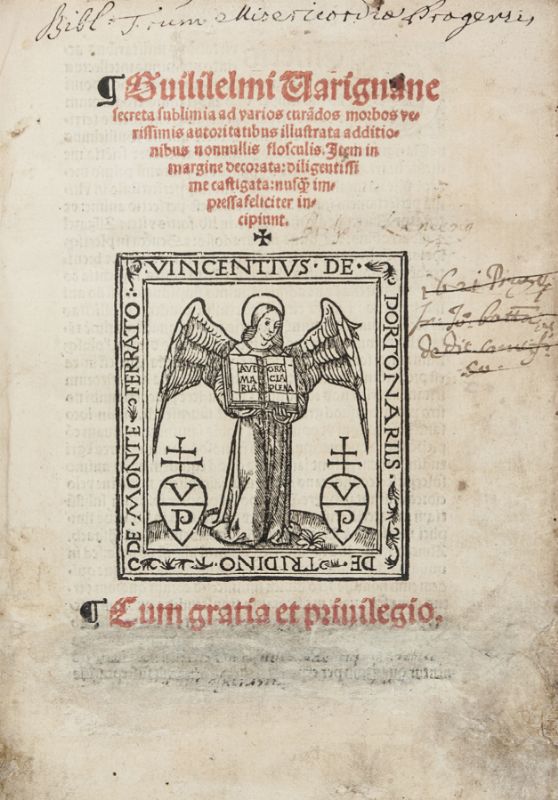 Bibl. Frum Misericordiæ Pragensis
¶ Guilielmi Varignane
secreta sublimia ad varios curādos morbos ve-
rissimis autoritatibus illustrata additio-
nibus nonnullis flosculis. Item in
margine decorata: diligentissi
me castigata: nusq̄ im-
pressa feliciter in-
cipiunt.
VINCENTIVS · DE ·
PORTONARIIS ·
DE · TRIDINO
DE · MONTE FERRATO:
AVE MARIA
GRA CIA PLENA
V P
V P
¶ Cum gratia et priuilegio.